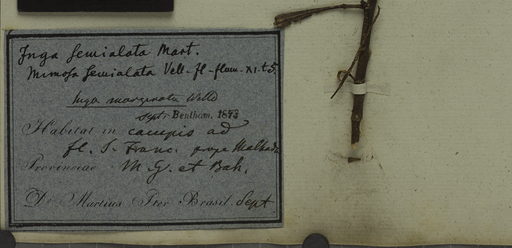 Inga semialata Mart.
Mimosa semialata Vell. fl. flum. XI. t 5.
Inga marginata Willd
sept. Bentham, 1873
Habitat in campis ad
fl. S. Franc. prope Malhada
Provinciae M. G. et Bah.
Dr Martius Iter Brasil. Sept